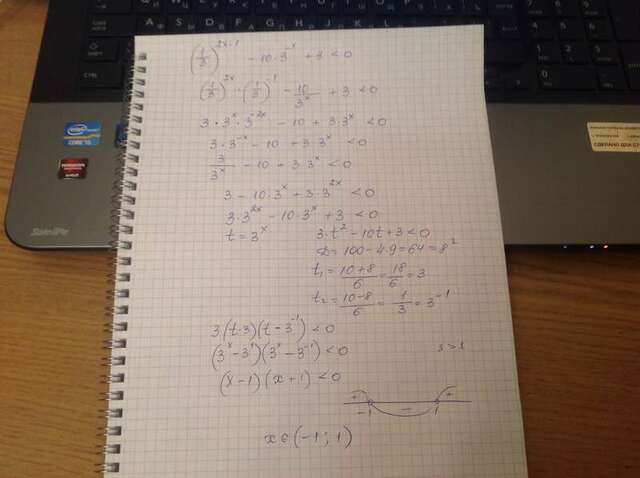 (1/3)^(2x-1) - 10·3^(-x) + 3 < 0
(1/3)^(2x) · (1/3)^(-1) - 10/3^x + 3 < 0
3·3^x·3^(-2x) - 10 + 3·3^x < 0
3·3^(-x) - 10 + 3·3^x < 0
3/3^x - 10 + 3·3^x < 0
3 - 10·3^x + 3·3^(2x) < 0
3·3^(2x) - 10·3^x + 3 < 0
t = 3^x 3·t² - 10t + 3 < 0
D = 100 - 4·9 = 64 = 8²
t₁ = (10+8)/6 = 18/6 = 3
t₂ = (10-8)/6 = 1/3 = 3^(-1)
3(t-3)(t-3^(-1)) < 0
(3^x - 3^1)(3^x - 3^(-1)) < 0 3 > 1
(x-1)(x+1) < 0
+ - +
-1 1
x ∈ (-1; 1)
intel
CORE i5
AMD
Satellite